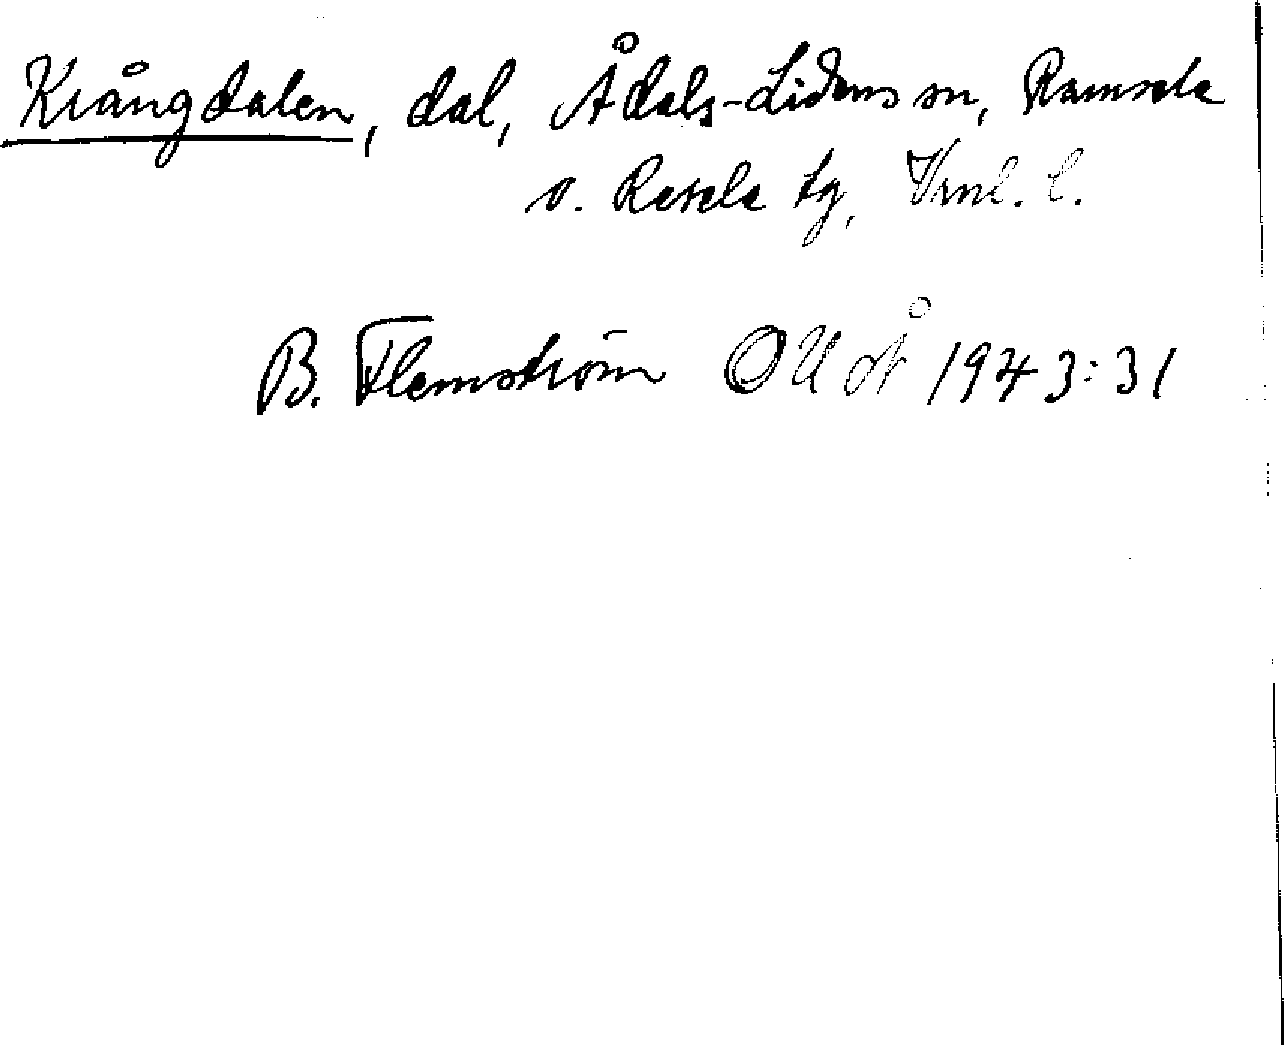 Krångdalen, dal, Ådals-Lidens sn, Ramsele
o. Resele tg, Vrnl. l.
B. Flemström OUoÅ 1943:31